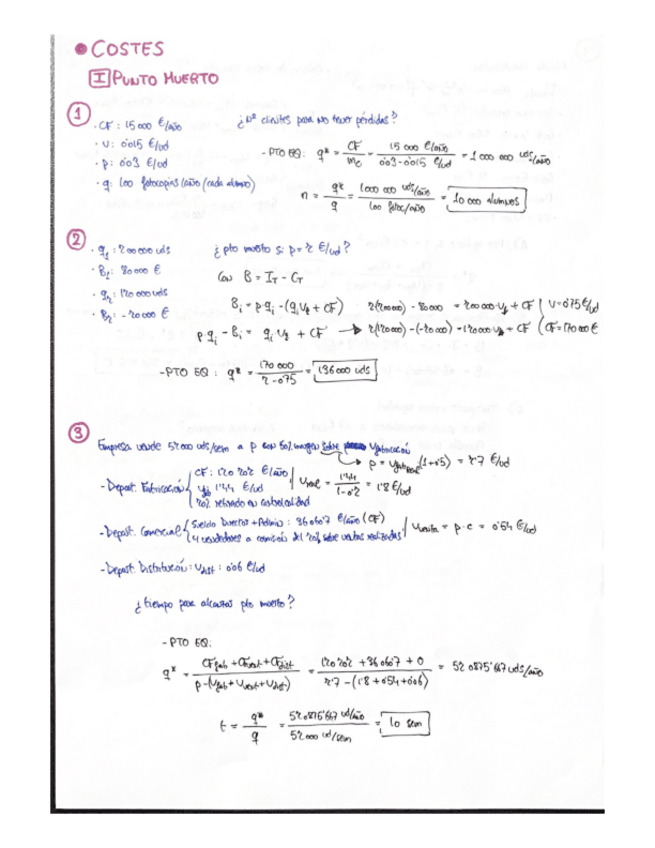 • COSTES
I PUNTO MUERTO
1
· CF: 15000 €/año
¿Nº clientes para no tener pérdidas?
· v: 0'015 €/ud
· p: 0'03 €/ud
· q: 100 fotocopias/año (cada alumno)
- PTO EQ: q* = CF/mc = 15 000 €/año / 0'03-0'015 €/ud = 1 000 000 uds/año
n = q*/q = 1000 000 uds/año / 100 fotoc/año = 10 000 alumnos
2
· q1: 200 000 uds
¿pto muerto si p = 2 €/ud?
· B1: 80 000 €
Con B = IT - CT
· q2: 120 000 uds
· B2: -20 000 €
Bi = p·qi - (qi vf + CF)
2(200000) - 80000 = 200 000 vf + CF
v = 0'75 €/ud
p qi - Bi = qi vf + CF → 2(120000) - (-20000) = 120000 vf + CF
CF = 170 000 €
- PTO EQ: q* = 170 000 / 2-0'75 = 136 000 uds
3
Empresa vende 52 000 uds/sem a p con 50% margen sobre vfabricación
→ p = (1+0'5) = 2'7 €/ud
- Depart. Fabricación
CF: 120 202 €/año
1'44 €/ud
20% retirado en control calidad
= 1'44 / 1-0'2 = 1'8 €/ud
- Depart. Comercial
Sueldo Director + Admin: 36 060'7 €/año (CF)
4 vendedores a comisión del 20% sobre ventas realizadas
vventa = p·c = 0'54 €/ud
- Depart. Distribución: vdist: 0'06 €/ud
¿tiempo para alcanzar pto muerto?
- PTO EQ:
q* = CFfab + CFvent + CFdist / p-(vfab + vvent + vdist) = 120 202 + 36 060'7 + 0 / 2'7 - (1'8 + 0'54 + 0'06) = 520 875'667 uds/año
t = q*/q = 520 875'667 ud/año / 52 000 ud/sem = 10 sem